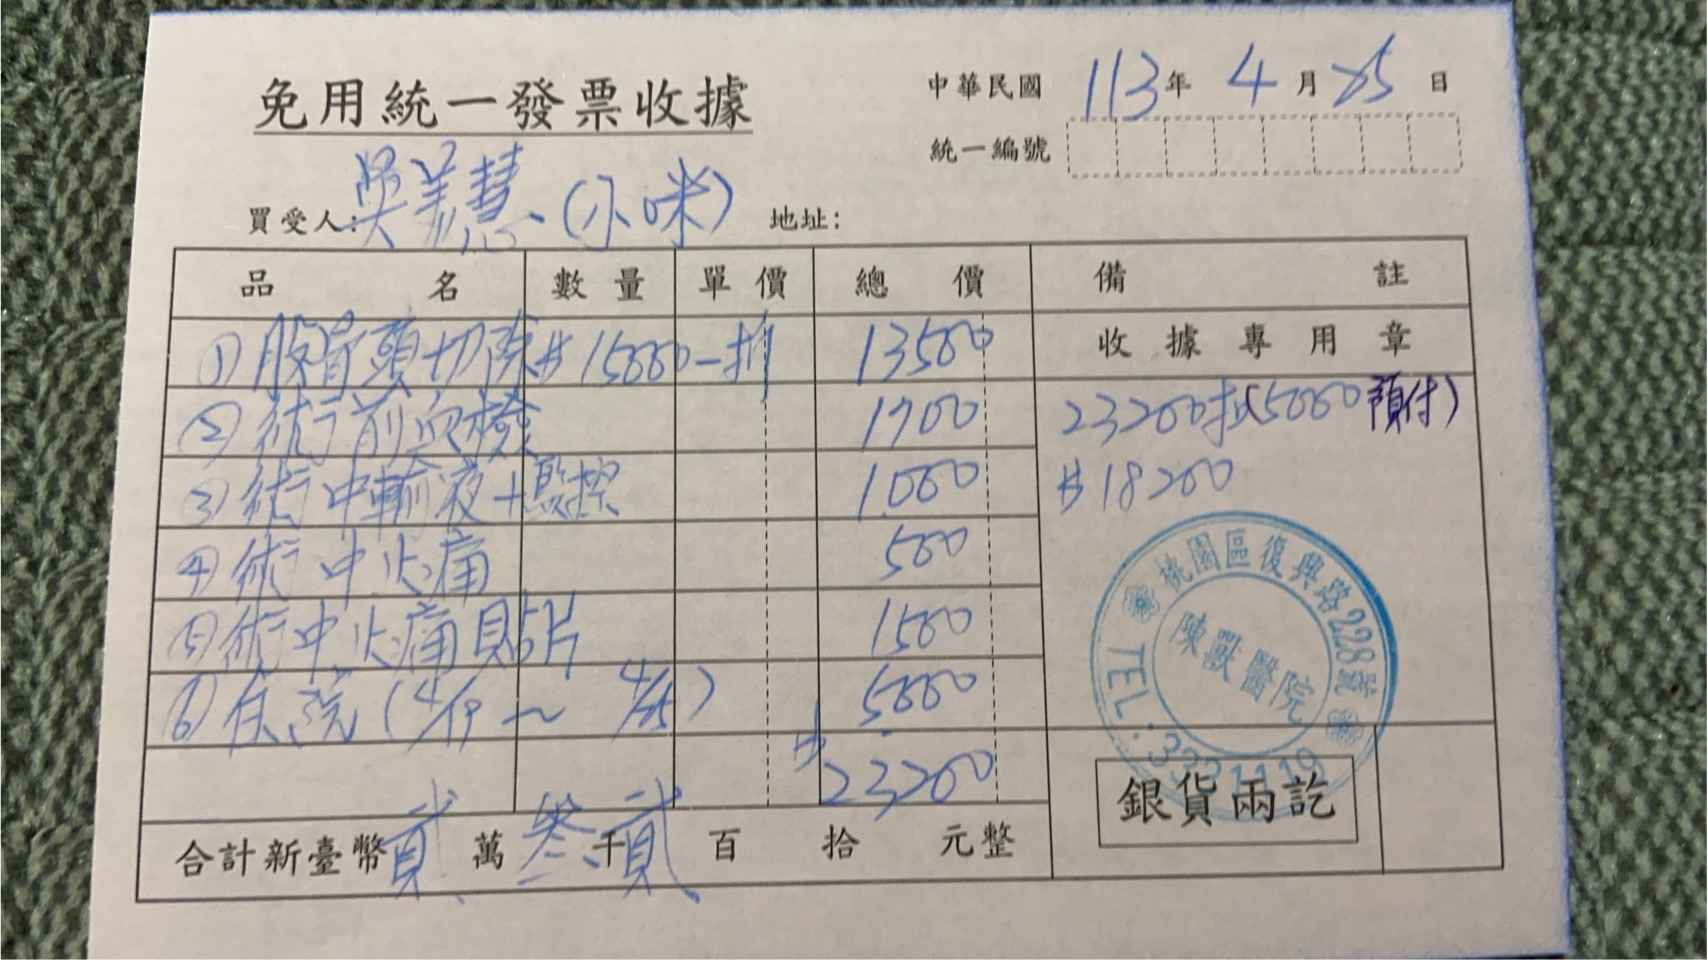 免用統一發票收據
中華民國 113年 4月 25日
統一編號
買受人: 吳美慧 (小咪) 地址:
品名 數量 單價 總價 備註
①股骨頭切除 $15000-折 13500 收據專用章
②術前血檢 1700 23200扣(5000預付)
③術中輸液+監控 1000 $18200
④術中止痛 500
⑤術中止痛貼片 1500
⑥住院(4/19~4/25) 5000
$23200
合計新臺幣貳萬叁千貳百拾元整
銀貨兩訖
桃園區復興路228號
陳獸醫院
TEL:3321119